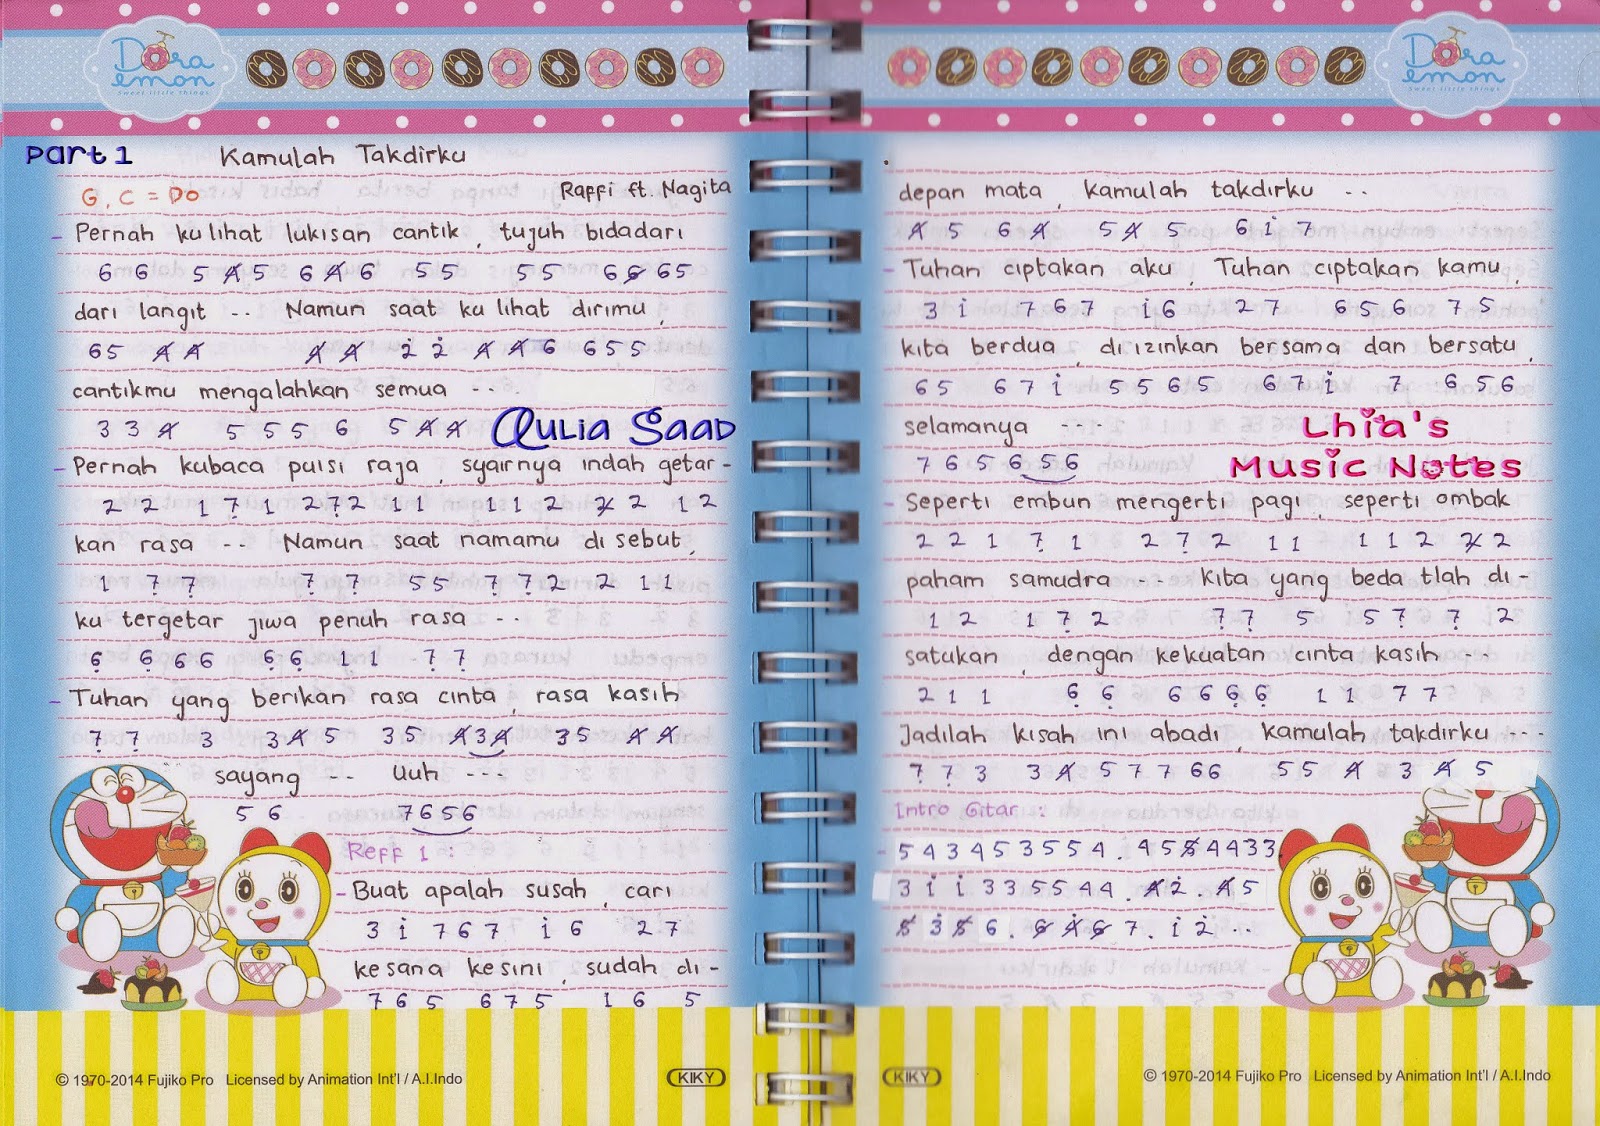 Dora
emon
sweet little things
Part 1 Kamulah Takdirku
G, C = Do Raffi ft. Nagita
- Pernah ku lihat lukisan cantik, tujuh bidadari
6 6 5 4̸ 5 6 4̸ 6 5 5 5 5 6 6̸ 6 5
dari langit -- Namun saat ku lihat dirimu,
6 5 4̸ 4̸ 4̸ 4̸ 2 2̇ 4̸ 4̸ 6 6 5 5
cantikmu mengalahkan semua --
3 3 4̸ 5 5 5 6 5 4̸ 4̸
Aulia Saad
- Pernah kubaca puisi raja, syairnya indah getar -
2 2 1 7̣ 1 2 7̣ 2 1 1 1 1 2 2̸ 2 1 2
kan rasa -- Namun saat namamu di sebut,
1 7̣ 7̣ 7̣ 7̣ 5 5 7̣ 7̣ 2 2 1 1
ku tergetar jiwa penuh rasa --
6̣ 6̣ 6 6 6̣ 6̣ 1 1 7̣ 7̣
- Tuhan yang berikan rasa cinta, rasa kasih
7̣ 7̣ 3 3 4̸ 5 3 5 4̸ 3 4̸ 3 5 4̸ 4̸
sayang -- Uuh ---
5 6 7 6 5 6
Reff 1 :
- Buat apalah susah, cari
3 1̇ 7 6 7 1̇ 6 2 7
kesana kesini, sudah di -
7 6 5 6 7 5 1 6 5
© 1970-2014 Fujiko Pro Licensed by Animation Int'l / A.I.Indo
KIKY
Dora
emon
sweet little things
depan mata, kamulah takdirku --
4̸ 5 6 4̸ 5 4̸ 5 6 1̇ 7
- Tuhan ciptakan aku, Tuhan ciptakan kamu,
3 1̇ 7 6 7 1̇ 6 2 7 6 5 6 7 5
kita berdua, diizinkan bersama dan bersatu,
6 5 6 7 1̇ 5 5 6 5 6 7 1̇ 7 6 5 6
selamanya ---
7 6 5 6 5 6
Lhia's
Music Notes
- Seperti embun mengerti pagi, seperti ombak
2 2 1 7̣ 1 2 7̣ 2 1 1 1 1 2 2̸ 2
paham samudra --- Kita yang beda tlah di -
1 2 1 7̣ 2 7̣ 7̣ 5 5 7̣ 7̣ 2
satukan, dengan kekuatan cinta kasih
2 1 1 6̣ 6̣ 6 6 6̣ 6̣ 1 1 7 7
Jadilah kisah ini abadi, kamulah takdirku ---
7̣ 7̣ 3 3 4̸ 5 7 7 6 6 5 5 4̸ 3 4̸ 5
Intro Gitar :
- 5 4 3 4 5 3 5 5 4 . 4 5 5̸ 4 4 3 3
3 1̇ 1̇ 3 3 5 5 4 4 . 4̸ 2̇ . 4̸ 5
5̸ 3̇ 5̸ 6 . 6̸ 4̸̇ 6̸ 7 . 1̇ 2̇ --
KIKY
© 1970-2014 Fujiko Pro Licensed by Animation Int'l / A.I.Indo